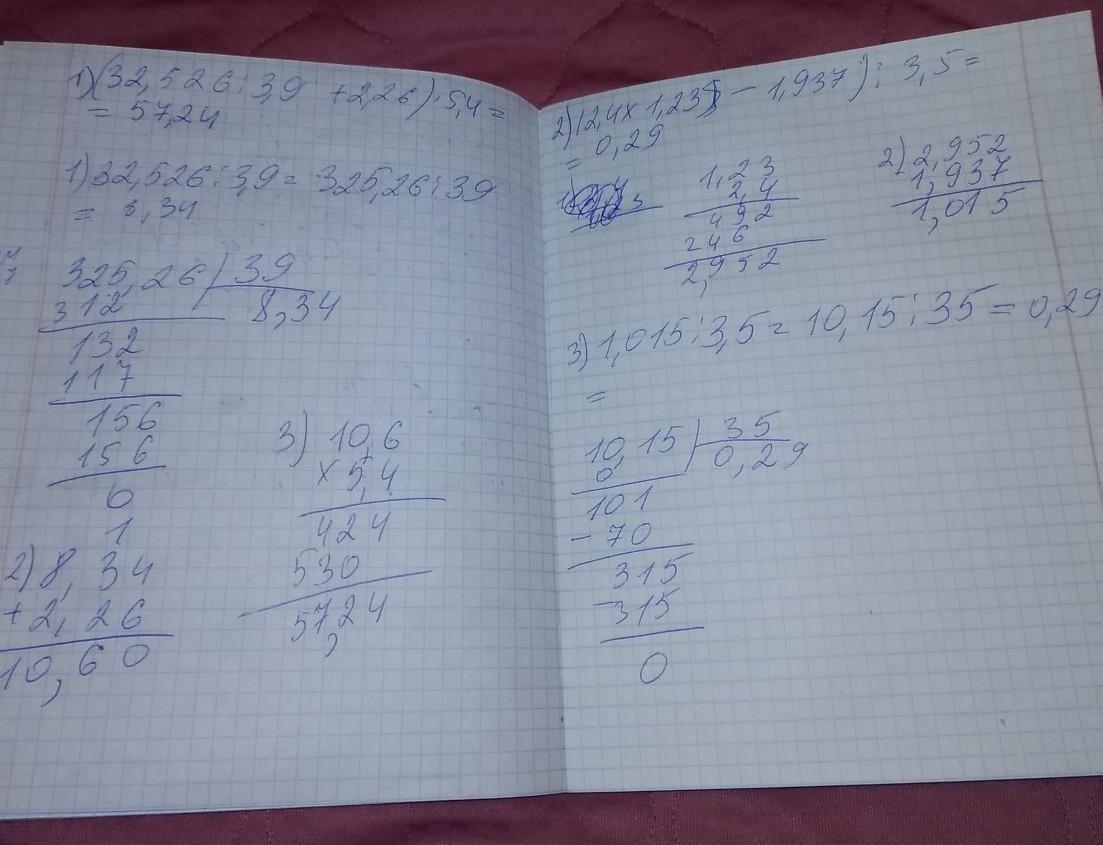 1)(32,526:3,9 +2,26)·5,4=
= 57,24
1)32,526:3,9= 325,26:39
= 8,34
325,26 39
312 8,34
132
117
156
156
0
1
2)8,34
+2,26
10,60
3) 10,6
×5,4
424
530
57,24
2)(2,4×1,23)-1,937): 3,5=
= 0,29
1,23
2,4
492
246
2,952
2)2,952
1,937
1,015
3)1,015:3,5=10,15:35=0,29
=
10,15 35
0 0,29
101
-70
315
-315
0